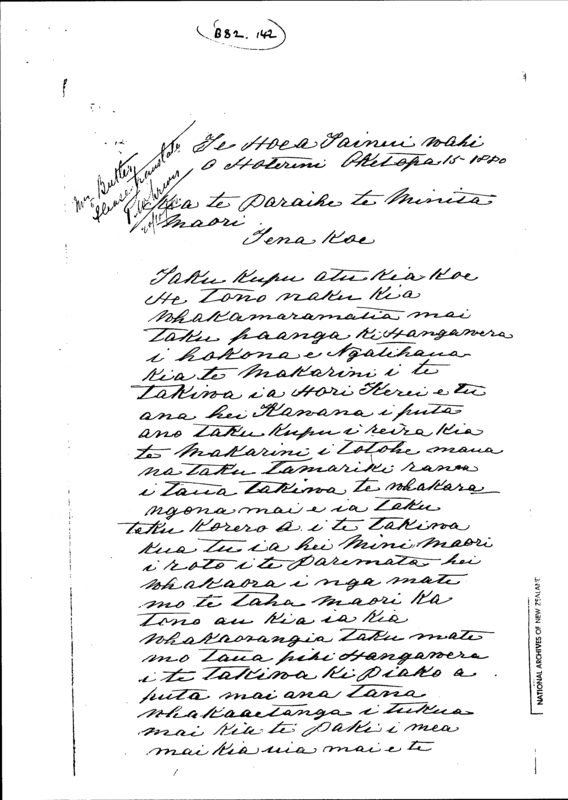 B82. 142
Mr Butler
Please translate
Te Hoea Tainui wahi
o Hoterini Oketopa 15-1880
Kia te Paraihe te Minita
Maori
Tena Koe
Taku Kupu atu Kia Koe
He tono naku Kia
whakamaramatia mai
taku paanga ki Hangawera
i hokona e Ngatihaua
Kia te Makarini i te
takiwa ia Hori Kerei e tu
ana hei Kawana i puta
ano taku Kupu i reira Kia
te Makarini i totohe maua
na taku tamariki ranei
i taua takiwa te whakara
ngona mai e ia taku
taku Korero a i te takiwa
Kua tu ia hei Mini Maori
i roto i te Paremata hei
whakaora i nga mate
mo te taha Maori Ka
tono au Kia ia Kia
whakaorangia taku mate
mo taua pihi Hangawera
i te takiwa ki Piako a
puta mai ana tana
whakaaetanga i tukua
mai Kia te Paki i mea
mai Kia uia mai e te
NATIONAL ARCHIVES OF NEW ZEALAND